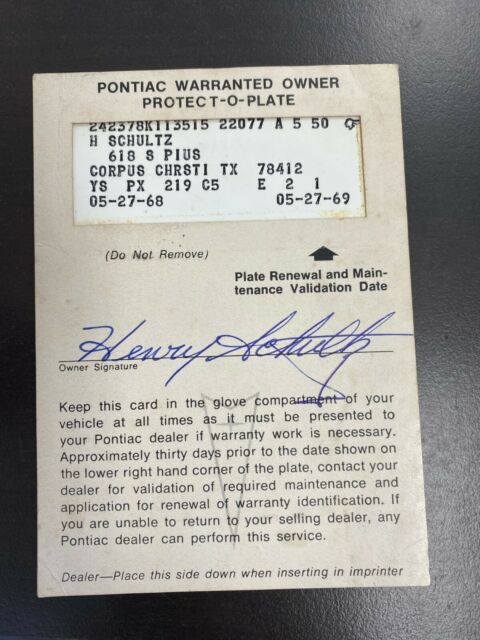 PONTIAC WARRANTED OWNER
PROTECT-O-PLATE
242378K113515 22077 A 5 50
H SCHULTZ
618 S PIUS
CORPUS CHRSTI TX 78412
YS PX 219 C5 E 2 1
05-27-68 05-27-69
(Do Not Remove)
Plate Renewal and Main-
tenance Validation Date
Henry Schultz
Owner Signature
Keep this card in the glove compartment of your
vehicle at all times as it must be presented to
your Pontiac dealer if warranty work is necessary.
Approximately thirty days prior to the date shown on
the lower right hand corner of the plate, contact your
dealer for validation of required maintenance and
application for renewal of warranty identification. If
you are unable to return to your selling dealer, any
Pontiac dealer can perform this service.
Dealer—Place this side down when inserting in imprinter